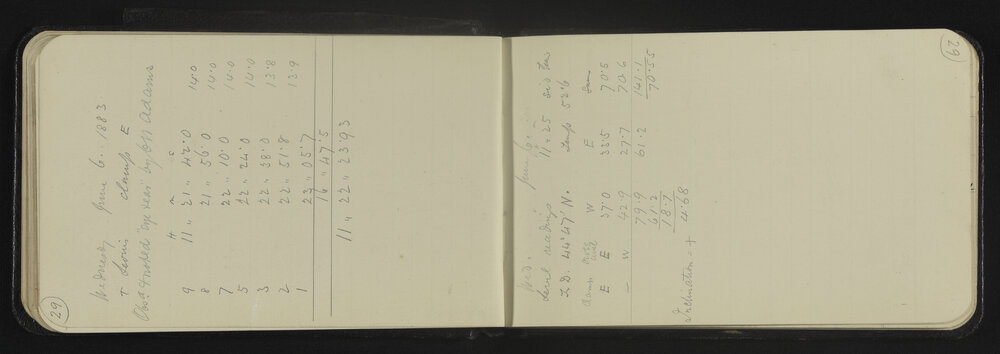 29
Wednesday June 6. 1883
τ Leonis Clamp E
Obsd & noted "eye & ear" by C H Adams
H m s
9 11 " 21 " 42.0 14.0
8 21 " 56.0 14.0
7 22 " 10.0 14.0
5 22 " 24.0 14.0
3 22 " 38.0 13.8
2 22 " 51.8 13.9
1 23 " 05.7
16 " 47.5
11 " 22 " 23.93
62
Wed. June 6.
Level readings 11 h 25 sid
Z.D. 44° 47' N. Temp 52.6
Clamp W E Sum
E E 37.0 33.5 70.5
– W 42.9 27.7 70.6
79.9 61.2 141.1
61.2 70.55
18.7
Inclination = + 4.68